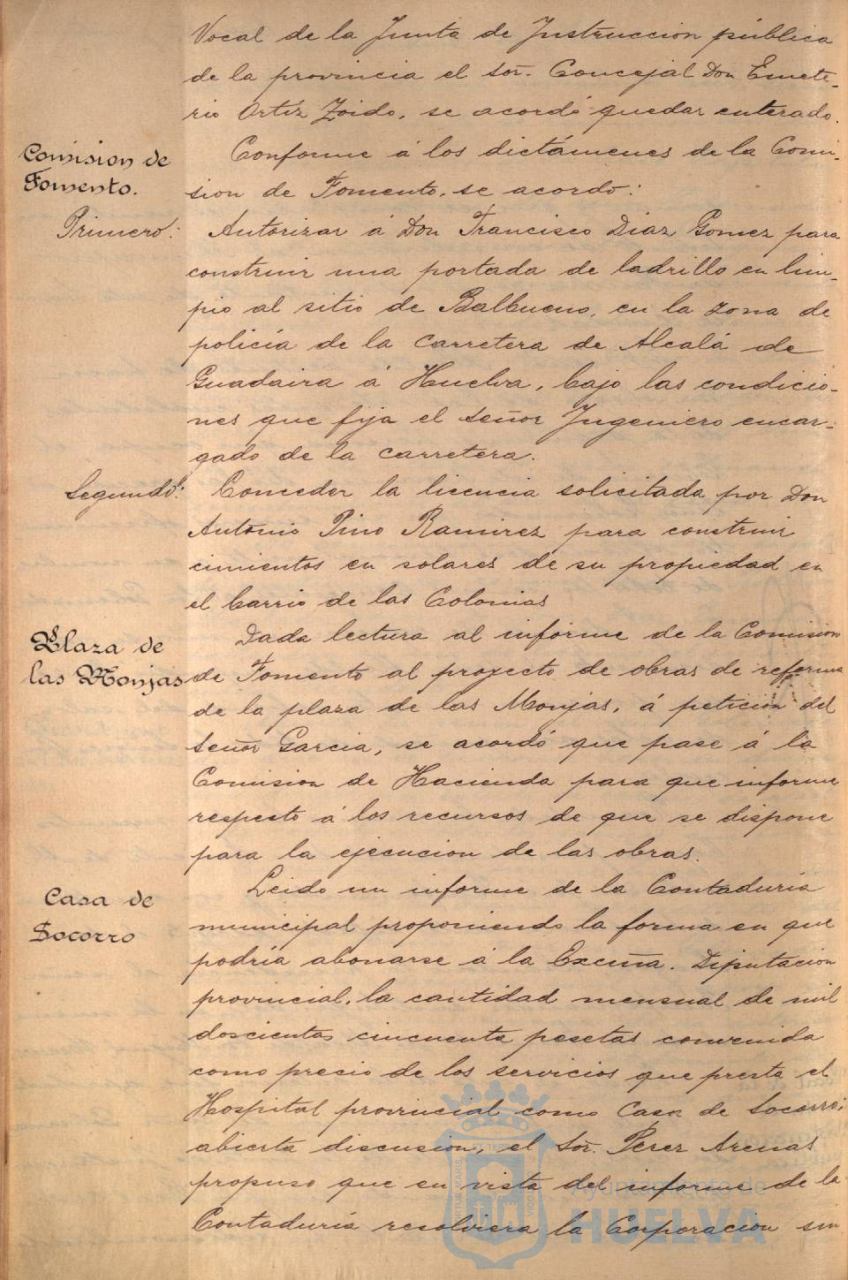 Vocal de la Junta de Instruccion pública
de la provincia el Sor. Concejal Don Emete-
rio Ortíz Zoido, se acordó quedar enterado.
Comision de
Fomento.
Conforme á los dictámenes de la Comi-
sion de Fomento, se acordo:
Primero:
Autorizar á Don Francisco Diaz Gomez para
construir una portada de ladrillo en lim-
pio al sitio de Balbueno, en la zona de
policía de la carretera de Alcalá de
Guadaira á Huelva, bajo las condicio-
nes que fija el Señor Ingeniero encar-
gado de la carretera.
Segundo:
Conceder la licencia solicitada por Don
Antonio Pino Ramirez para construir
cimientos en solares de su propiedad en
el barrio de las Colonias
Plaza de
las Monjas
Dada lectura al informe de la Comision
de Fomento al proyecto de obras de reforma
de la plaza de las Monjas, á peticion del
Señor Garcia, se acordó que pase á la
Comision de Hacienda para que informe
respecto á los recursos de que se dispone
para la ejecucion de las obras.
Casa de
Socorro
Leido un informe de la Contaduria
municipal proponiendo la forma en que
podría abonarse á la Excma. Diputacion
provincial, la cantidad mensual de mil
doscientas cincuenta pesetas convenida
como precio de los servicios que presta el
Hospital provincial como Casa de Socorro;
abierta discusion, el Sor. Perez Arenas
propuso que en vista del informe de la
Contaduría resolviera la Corporacion sin
Ayuntamiento de
HUELVA